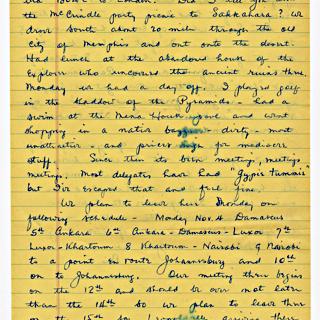 the McCrindle party picnic to Sakkahara? We
drove South about 20 miles through the old
City of Memphis and out onto the desert.
Had lunch at the abandoned house of the
Explorer who uncovered the ancient ruins there.
Monday we had a day off. I played golf
in the Shaddow of the Pyramids - had a
Swim at the Mena House and went
Shopping in a native - dirty - most
unattractive - and prices high for mediocre
stuff. Since then its been meetings, meetings
meetings. Most delegates have had "Gyppie Tummies"
but I've escaped that and feel fine.
We plan to leave here Monday on
following schedule - Monday Nov. 4 Damascus
5th Ankara 6th Ankara - Damascus - Luxor 7th
Luxor - Khartoum 8 Khartoum - Nairobi 9 Nairobi
to a point en route Johannesburg and 10th
on to Johannesburg. Our meeting there begins
on the 12th and should be over not later
than the 14th so we plan to leave there
on the 15th